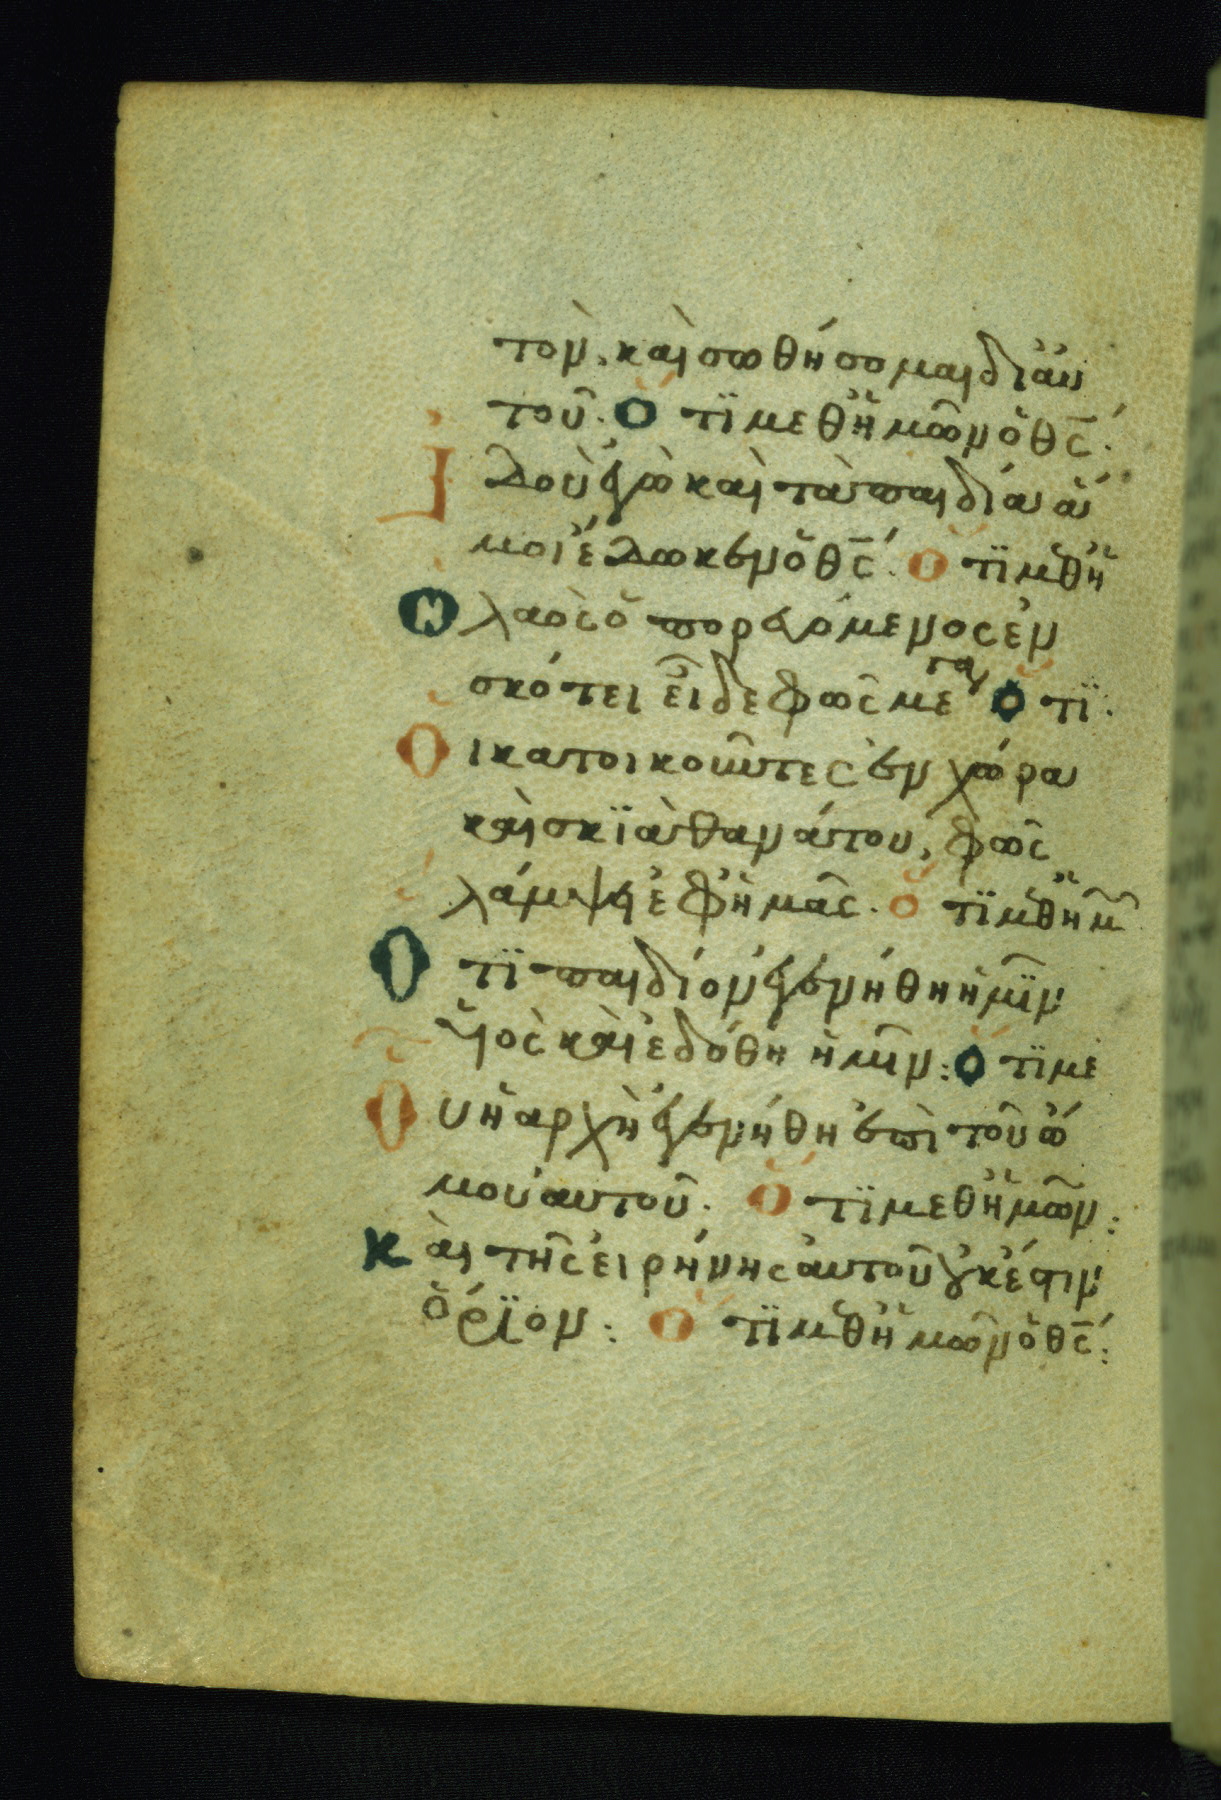 τὸν, καὶ σωθήσομαι δι ἀυ
τοῦ. Ὅ τϊ μεθ ἡμῶν ὁ θς̅.
Ἰδοὺ ἐγὼ καὶ τὰ παιδία ἅ
μοι ἔδωκεν ὁ θς̅. Ὅ τϊ μεθ ἡ
Ὁ λαὸς ὁ πορευόμενος ἐν
σκότει εἶδε φῶς μέγα Ὅ τϊ.
Ὁι κατοικοῦντες ἐν χώρα
καὶ σκϊᾶ θανάτου, φῶς
λάμψει ἐφ ἡμᾶς. Ὅ τϊ μεθ ἡμ
Ὅ τϊ παιδίον ἐγενήθη ἡμῖν
ὑιὸς καὶ ἐδόθη ἡμῖν: Ὅ τϊ με
Ὁυ ἡ αρχὴ ἐγενήθη ἐπὶ τοῦ ὤ
μου ἀυτοῦ. Ὅ τϊ μεθ ἡμῶν:
Κὰι τῆς ἐιρήνης ἀυτοῦ ὀυκ ἔστιν
ὅρϊον: Ὅ τϊ μεθ ἡμῶν ὁ θς̅: